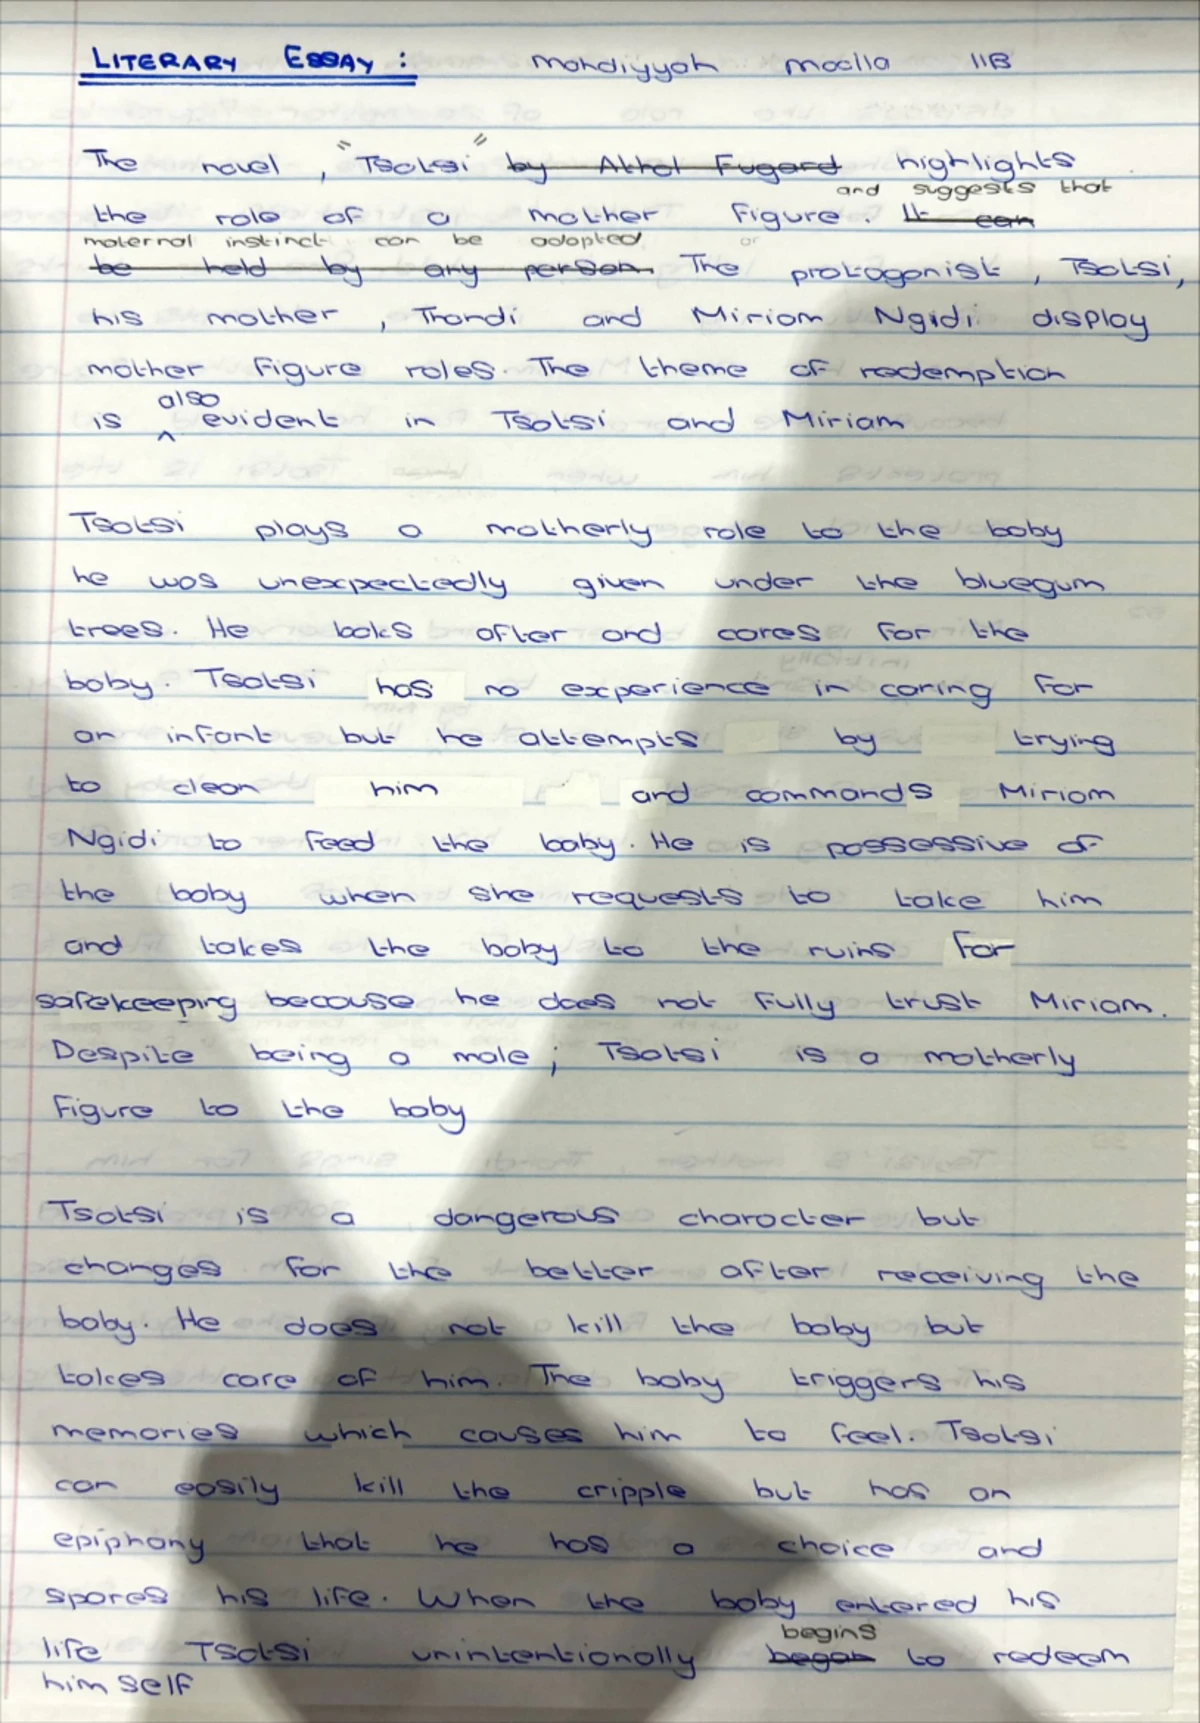 LITERARY ESSAY: Mohdiyyah Moolla 11B
The novel, "Tsotsi" by Athol Fugard highlights
and suggests that
the role of a mother figure. It can
maternal instinct can be adopted or
be held by any person. The protagonist, Tsotsi,
his mother, Thandi and Miriam Ngidi display
mother figure roles. The theme of redemption
also
is ^ evident in Tsotsi and Miriam
Tsotsi plays a motherly role to the baby
he was unexpectedly given under the bluegum
trees. He looks after and cares for the
baby. Tsotsi has no experience in caring for
an infant but he attempts by trying
to clean him and commands Miriam
Ngidi to feed the baby. He is possessive of
the baby when she requests to take him
and takes the baby to the ruins for
safekeeping because he does not fully trust Miriam.
Despite being a male; Tsotsi is a motherly
figure to the baby
Tsotsi is a dangerous character but
changes for the better after receiving the
baby. He does not kill the baby but
takes care of him. The baby triggers his
memories which causes him to feel. Tsotsi
can easily kill the cripple but has an
epiphany that he has a choice and
spares his life. When the baby entered his
begins
life Tsotsi unintentionally began to redeem
himself